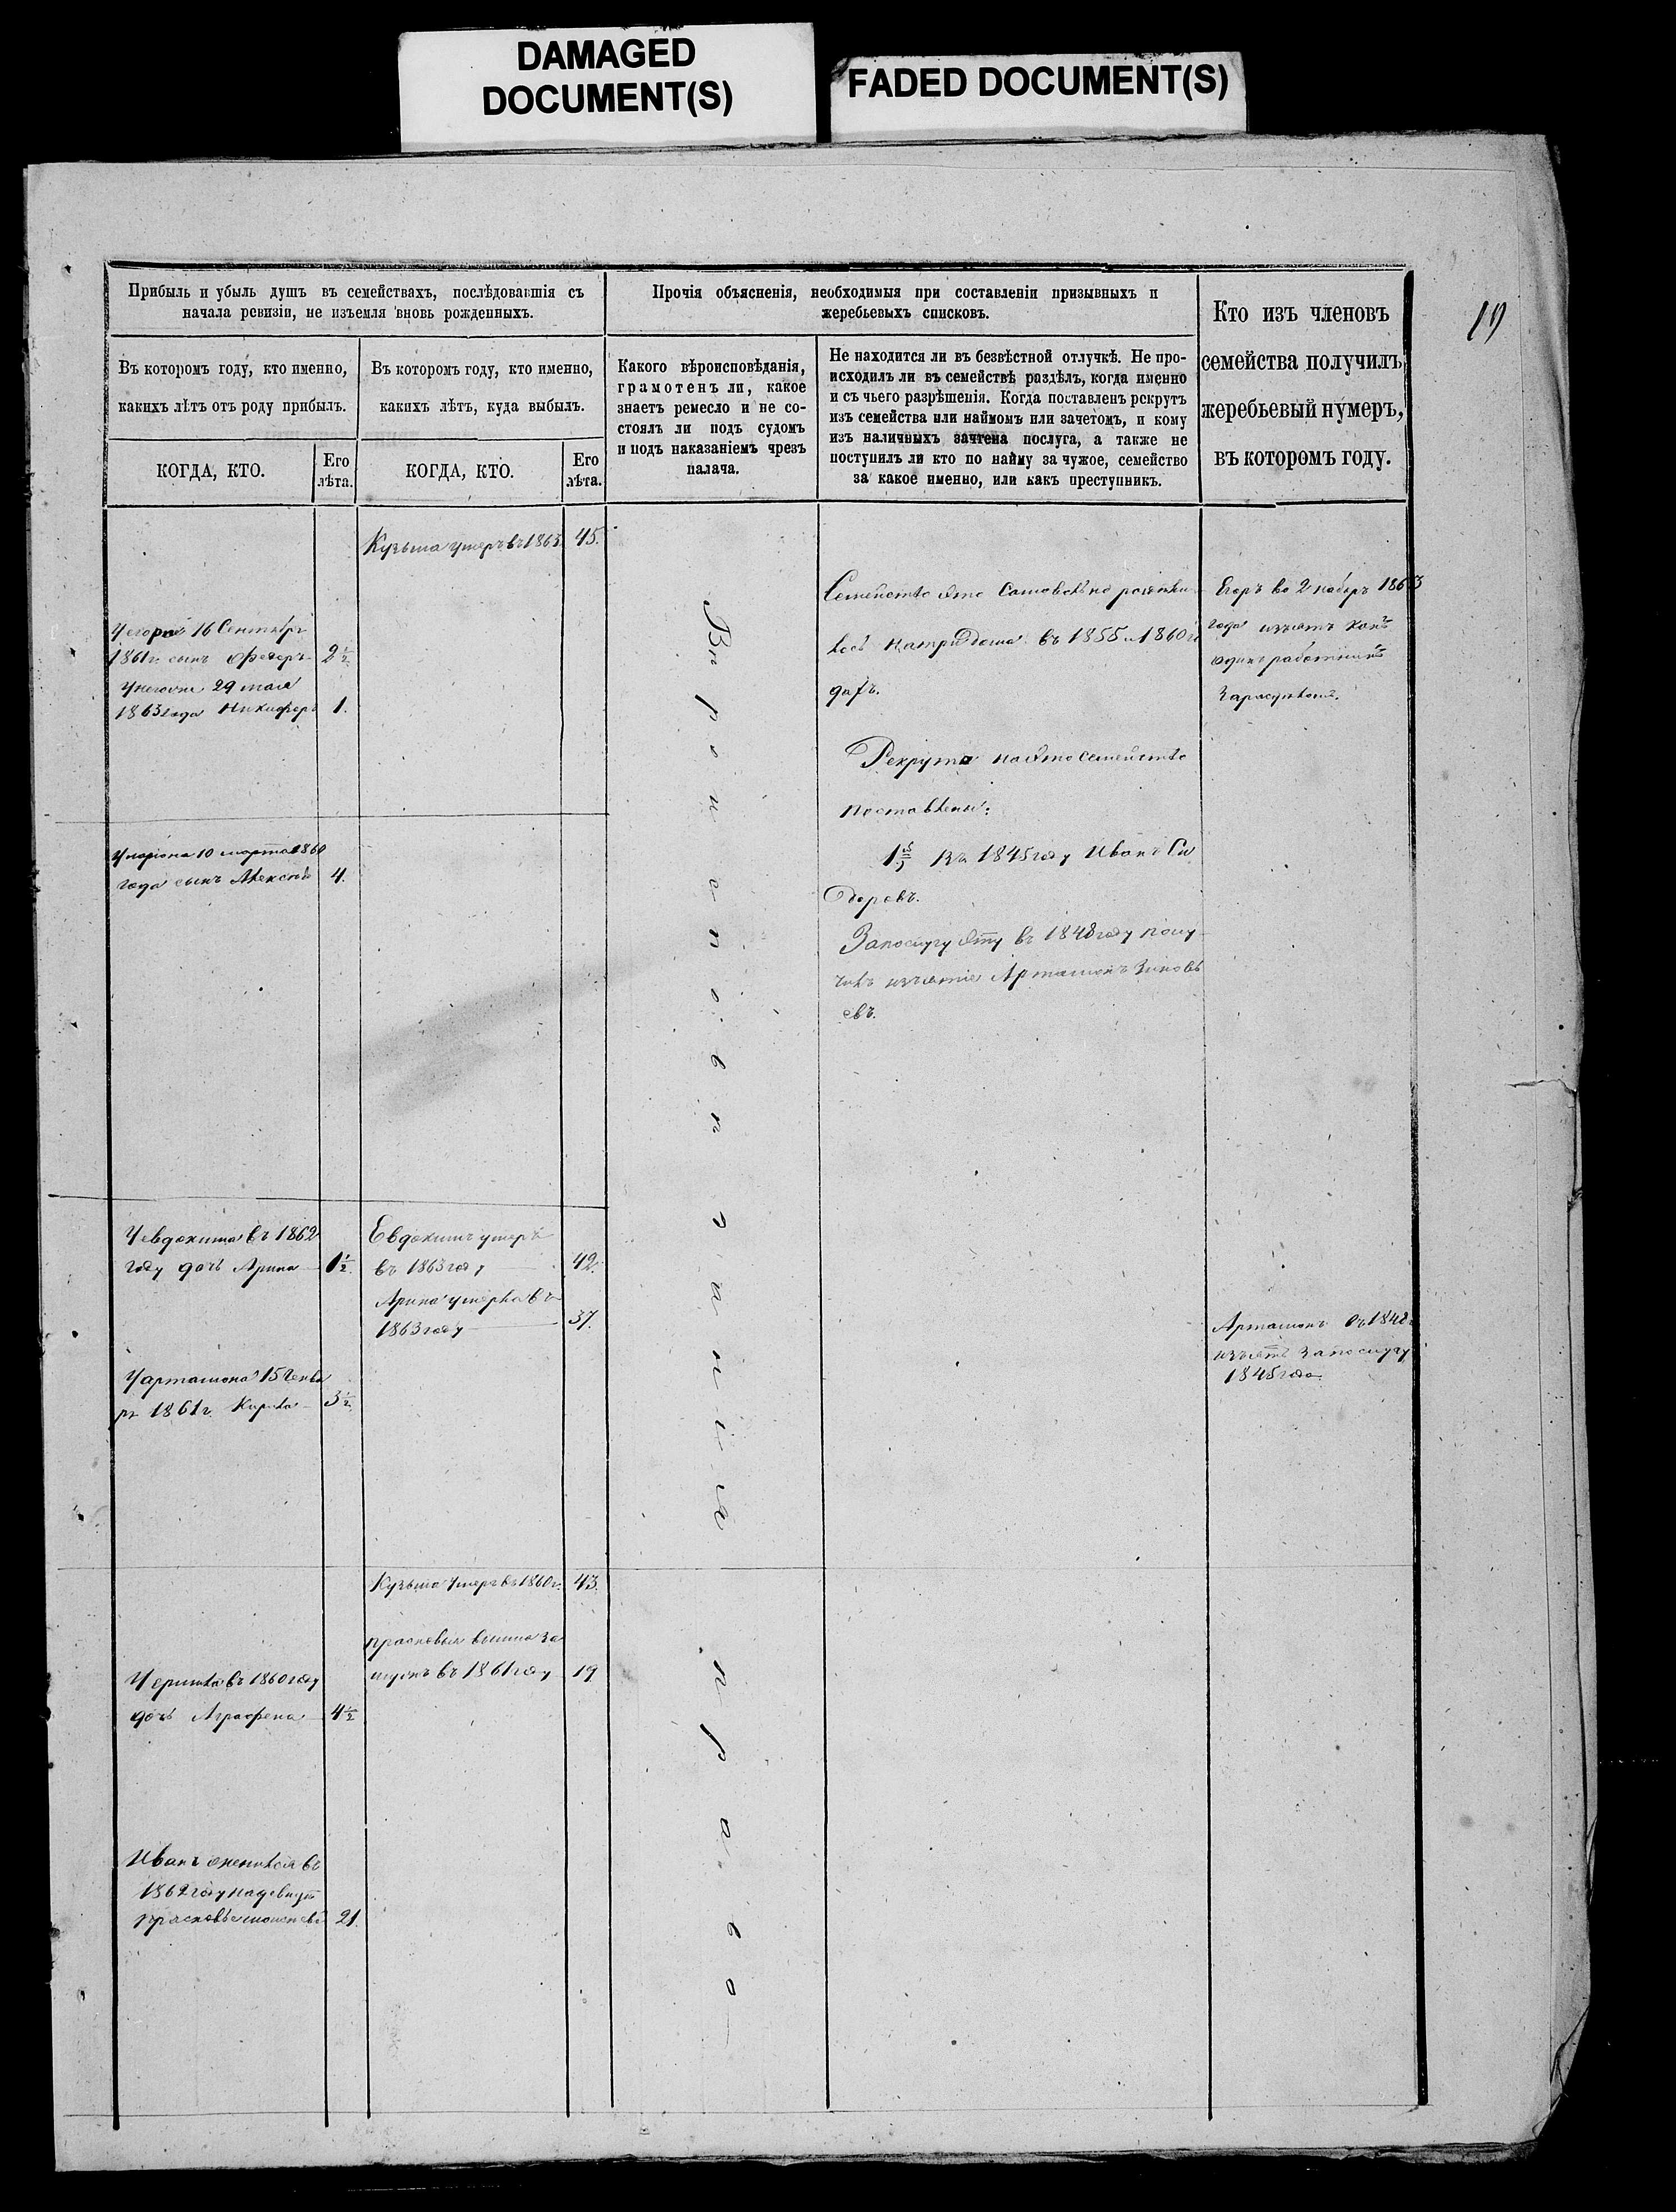 DAMAGED
DOCUMENT(S)
FADED DOCUMENT(S)
19
Прибыль и убыль душъ въ семействахъ, послѣдовавшія съ
начала ревизіи, не изъемля вновь рожденныхъ.
Въ которомъ году, кто именно,
какихъ лѣтъ отъ роду прибылъ.
КОГДА, КТО.
Его
лѣта.
Въ которомъ году, кто именно,
какихъ лѣтъ, куда выбылъ.
КОГДА, КТО.
Его
лѣта.
Прочія объясненія, необходимыя при составленіи призывныхъ и
жеребьевыхъ списковъ.
Какого вѣроисповѣданія,
грамотенъ ли, какое
знаетъ ремесло и не со-
стоялъ ли подъ судомъ
и подъ наказаніемъ чрезъ
палача.
Не находится ли въ безвѣстной отлучкѣ. Не про-
исходилъ ли въ семействѣ раздѣлъ, когда именно
и съ чьего разрѣшенія. Когда поставленъ рекрутъ
изъ семейства или наймомъ или зачетомъ, и кому
изъ наличныхъ зачтена послуга, а также не
поступилъ ли кто по найму за чужое, семейство
за какое именно, или какъ преступникъ.
Кто изъ членовъ
семейства получилъ
жеребьевый нумеръ,
въ которомъ году.
Кузьма умеръ въ 1863. 45.
16 Сентября
1861г. сынъ Федоръ 2½
29 мая
1863 года Никифоръ 1.
Улариона 10 марта 1860
года сынъ Алексѣй 4.
Уевдокима въ 1862
году дочь Арина 1½.
Евдокимъ умеръ
въ 1863 году 42.
Арина умерла въ
1863 году 37.
Уарташона 15
1861г. Кирила 3½
Кузьма умеръ въ 1860г. 43.
прасковья вышла за
мужъ въ 1861 году 19
въ 1860 году
дочь Аграфена 4½
Иванъ женился въ
1862 году на девицѣ
прасковье 21.
Вѣроисповѣданія
право
Семейство это Самовольно раздѣли
лось натри дома въ 1855 и 1860 го
дахъ.
Рекрута на это семейство
поставлены:
1й Въ 1845 году Иванъ Си
доровъ.
Запослугу эту въ 1848 году полу
чилъ изъятіе Арташонъ Зиновь
евъ.
Егоръ во 2 наборъ 1863
года изъятъ какъ
одинъ работникъ
Арташонъ въ 1848
изъятъ запослугу
1845 года